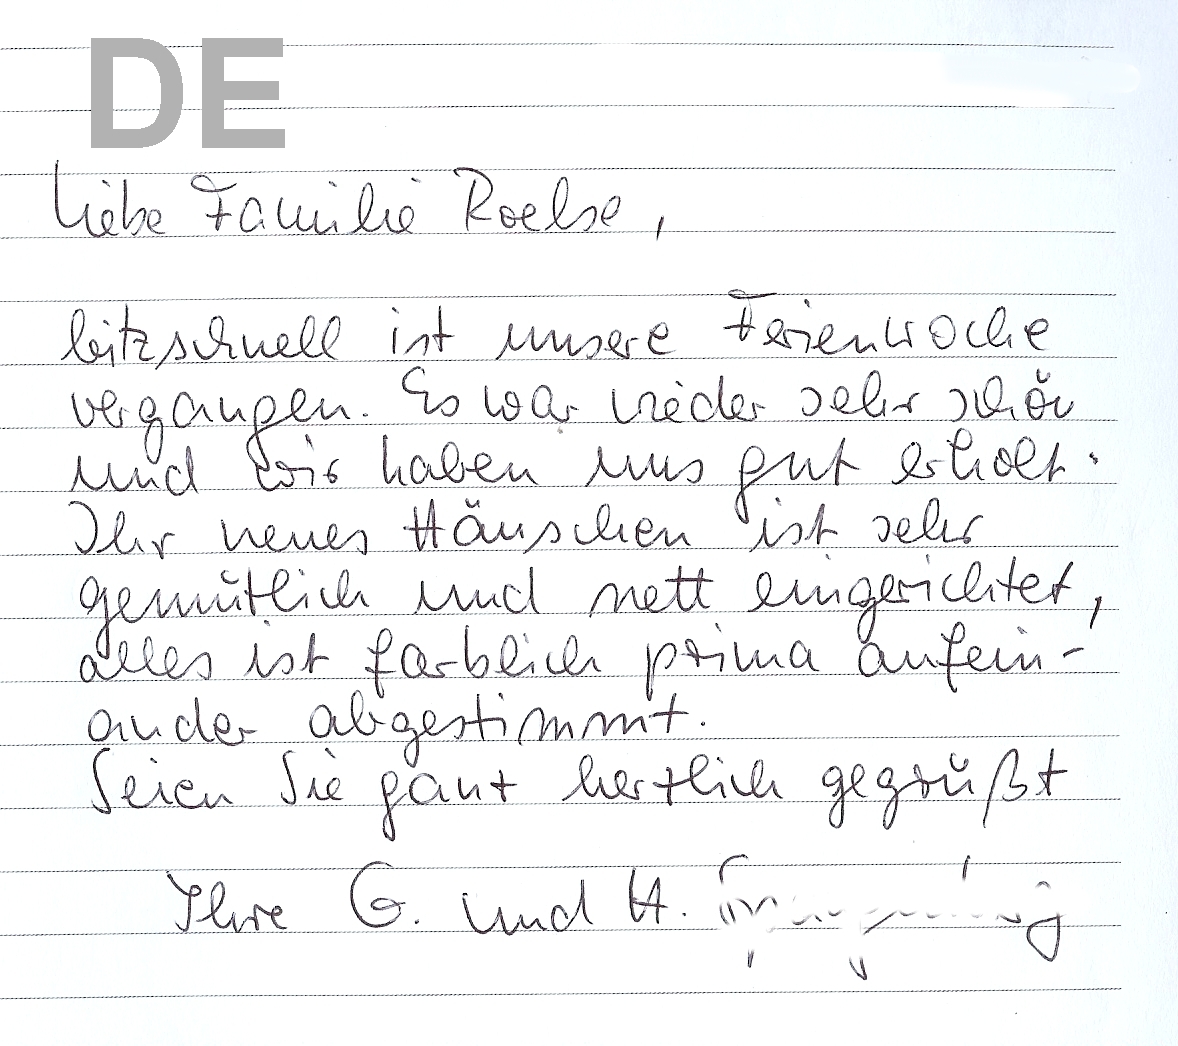 DE
Liebe Familie Roelse,
blitzschnell ist unsere Ferienwoche
vergangen. Es war wieder sehr schön
und wir haben uns gut erholt.
Ihr neues Häuschen ist sehr
gemütlich und nett eingerichtet,
alles ist farblich prima aufein-
ander abgestimmt.
Seien Sie ganz herzlich gegrüßt
Ihre G. und H.